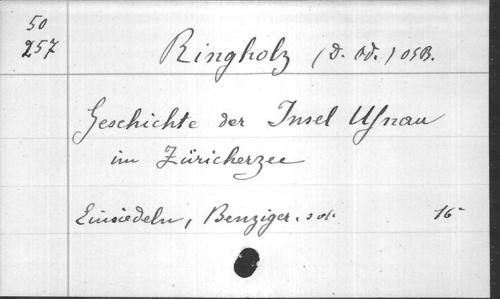 50
257
Ringholz (d. Od.) OSB.
Geschichte der Insel Ufnau
im Züricherzee
Einsiedeln, Benziger.
16-